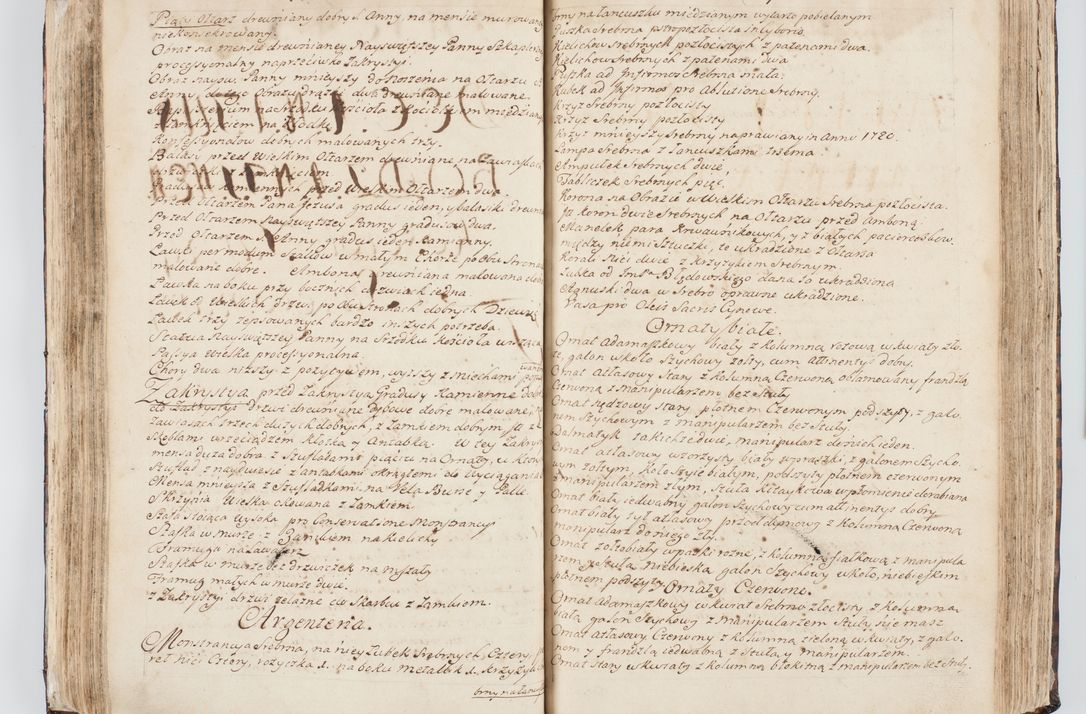 Piąty Ołtarz drewniany dobry S. Anny, na mensie murowaney
niekonsekrowaney.
Obraz na mensie drewnianey Nayswiętszey Panny Szkaplerzney
processyonalny naprzeciwko Zakrystyi.
Obraz Nayśw. Panny mnieyszy do noszenia na Ołtarzu S.
Anny
na Srzodku Kościoła
Konfessyonałow dobrych malowanych trzy.
Balasy przed Wielkim Ołtarzem drewniane na Zawiasach
Gradusow kamiennych przed Wielkim Ołtarzem dwa.
Przed Ołtarzem Pana Jezusa gradus ieden, y balasik drewn
Przed Ołtarzem Nayświętszey Panny gradusow dwa.
Przed Ołtarzem S. Anny gradus ieden kamienny.
Ławki per modum Stallow w małym Chorze po obu Stronach
malowane dobre. Ambona drewniana malowana dobra
Ławka na boku przy bocznych drzwiach iedna.
Ławek wielkich po obu Stronach dobrych Dziewięć
Ławek trzy zepsowanych bardzo inszych potrzeba.
Statua Nayświętszey Panny na Srzodku kościoła wisząca
Passya wielka processyonalna.
Chory dwa niższy z pozytywem, wyższy z miechami
Zakrystya przed Zakrystyą Gradusy Kamienne dobre
do Zakrystyi drzwi drewniane dębowe dobre malowane, na
zawiasach trzech dużych dobrych, z Zamkiem dobrym
Skoblami wrzeciądzem Klotką y Antabką. W tey Zakrystyi
mensa duża dobra z Szufladami piącią na Ornaty, u ktorych
Szuflad z naydwiesie z antabkami okrągłemi do Wyciągania
Mensa mnieysza z Szufladkami na Vela Bursy y Palle
Skrzynia Wielka okowana z Zamkiem.
Szafa stoiąca wysoka pro Conservatione Monstrancyi
Szafka w murze z Zamkiem na kielichy
Framuga na Lavaterz
Szafka w murze bez drzwiczek na mszały
Framug małych w murze dwie.
z Zakrystyi drzwi żelazne do Skarbcu z Zamkiem.
Argenteria.
Monstrancya Srebrna, na niey Ząbek Srebrnych Cztery, Pe
reł nici Cztery, rożyczka 1. na boku metalik 1. krzyżyk
brny na łancu
brny na łancuszku miedzianym wytarto pobielanym
Puszka Srebrna pstropozłocista in Cyborio
Kielichow Srebrnych pozłocistych z patenami dwa.
Kielichow Srebrnych z patenami dwa
Puszka ad Infirmos Srebrna mała.
Kubek ad Infirmos pro Ablutione Srebrny.
Krzyż Srebrny pozłocisty
Krzyż Srebrny pozłocisty
Krzyż mnieyszy Srebrny naprawiany in Anno 1780
Lampa Srebrna z Łancuszkami trzema
Ampułek Srebrnych dwie,
Tabliczek Srebrnych pięć.
Korona na Obrazie w Wielkim Ołtarzu Srebrna pozłocista.
It. koron dwie Srebrnych na Ołtarzu przed Amboną.
Manelek para krwawnikowych, y z białych paciorek
między niemi Sztuczki, te ukradzione z Ołtarza
Korali nici dwie z krzyżykiem Srebrnym.
Ząbka od Jms Błędowskiego dana ta ukradziona
Agnuski dwa w Srebro oprawne ukradzione.
Vasa pro Oleis Sacris Cynowe.
Ornaty białe.
Ornat Adamaszkowy biały z kolumną rozową w kwiaty zło
te, galon wkoło szychowy żołty, cum Attinentys dobry.
Ornat Atlasowy Stary z Kolumną Czerwoną obłamowany frandzlą
Czerwoną z manipularzem bez Stuły
Ornat rędzowy stary płotnem Czerwonym podszyty, z galo
nem szychowym z manipularzem bez Stuły.
Dalmatyk takichże dwie, manipularz do nich ieden
Ornat atlasowy w rzorzysty biały w prąszki, z galonem Szycho
wym żołtym, koło szyie białym, podszyty płotnem czerwonym
z manipularzem złym, Stuła Kitaykowa w płomienie dorabiana
Ornat biały iedwabny galon szychowy cum attinentys dobry
Ornat biały tył atlasowy przod dymowy z Kolumną Czerwoną
manipularz do niego zły.
Ornat żołtobiały w paski rożne, z kolumną fiałkową z manipula
rzem y Stułą niebieską galon szychowy wkoło, niebieskim
płotnem podszyty. Ornaty Czerwone.
Ornat Adamaszkowy w kwiat Srebrno złocisty z kolumną
białą galon Szychowy z Manipularzem Stuły nie masz.
Ornat Atlasowy Czerwony z kolumną zieloną w kwiaty, z galo
nem y frandzlą iedwabną z Stułą y manipularzem.
Ornat Stary w kwiaty z kolumną błękitną z manipularzem bez Stuły.